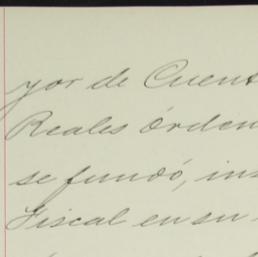 yor de Cuent
Reales órden
se fundó, ins
Fiscal en su